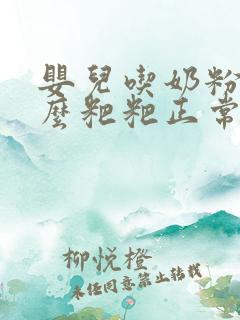 嬰兒喫奶粉
麽粑粑正常
柳悅橙
未任同意禁止转载